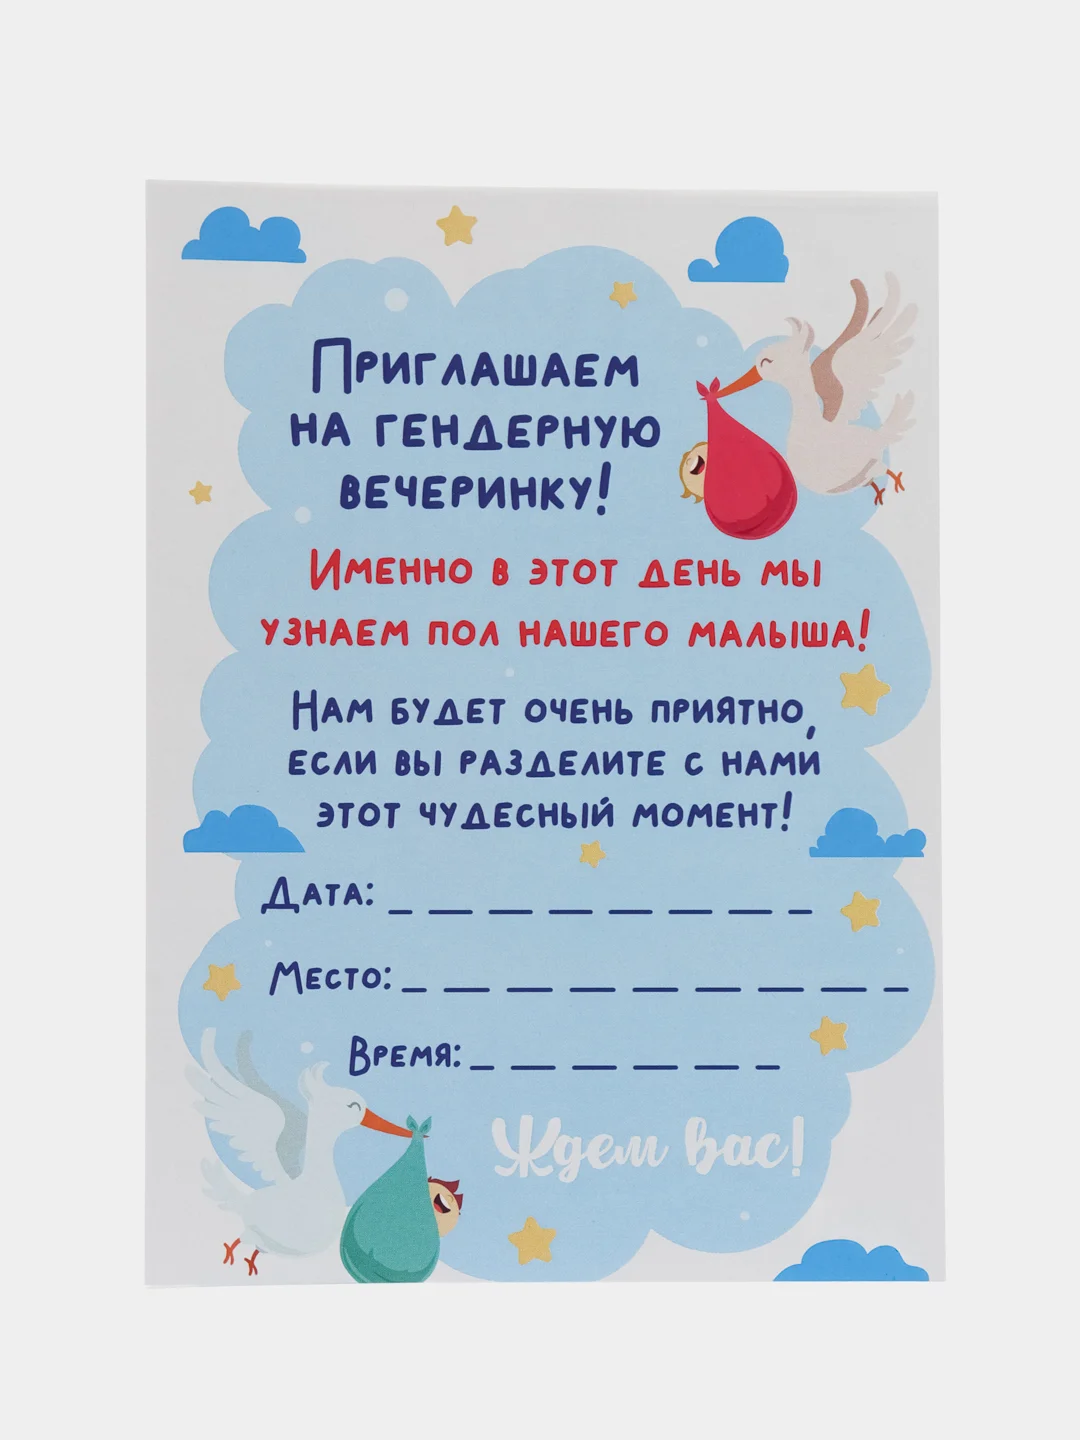 Приглашаем
на гендерную
вечеринку!
Именно в этот день мы
узнаем пол нашего малыша!
Нам будет очень приятно,
если вы разделите с нами
этот чудесный момент!
Дата: _ _ _ _ _ _ _ _
Место: _ _ _ _ _ _ _ _ _
Время: _ _ _ _ _ _
Ждем вас!